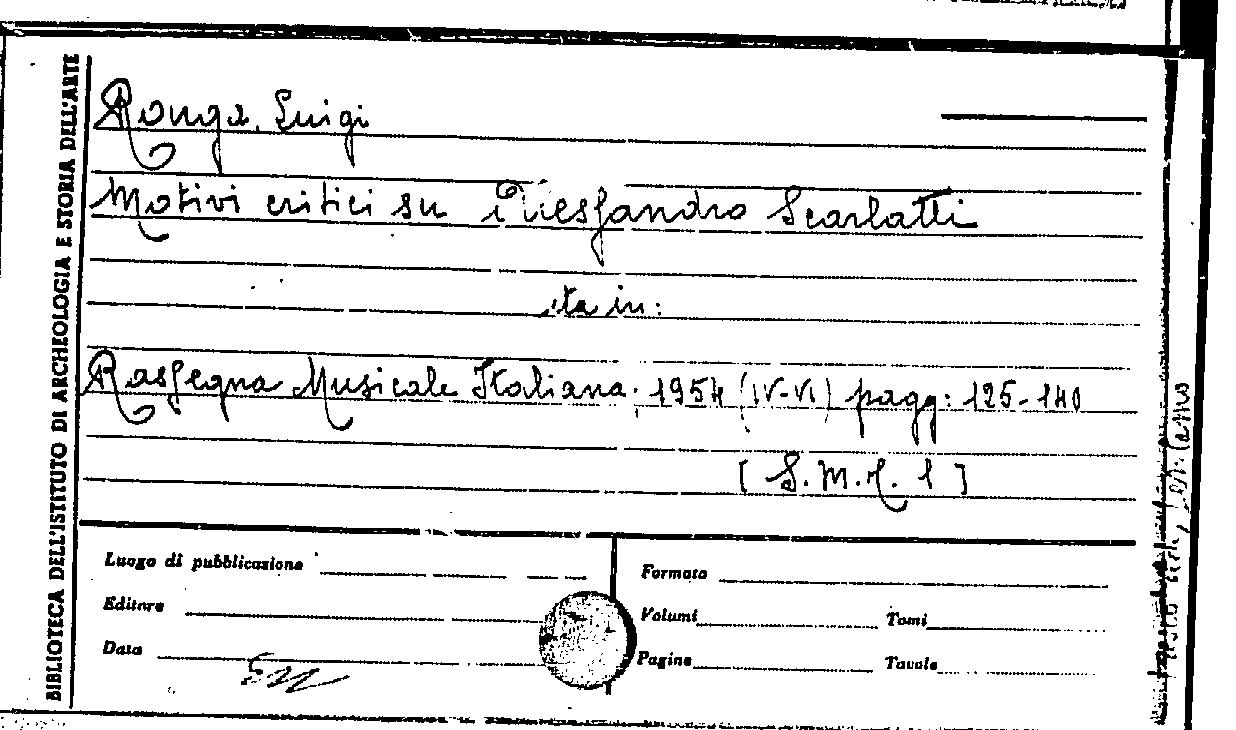 BIBLIOTECA DELL'ISTITUTO DI ARCHEOLOGIA E STORIA DELL'ARTE
Ronga, Luigi
Motivi critici su Alessandro Scarlatti
sta in:
Rassegna Musicale Italiana: 1954 (IV-VI) pagg: 125-140
[ S.M.R. 1 ]
Luogo di pubblicazione
Editore
Data
Formato
Volumi Tomi
Pagine Tavole